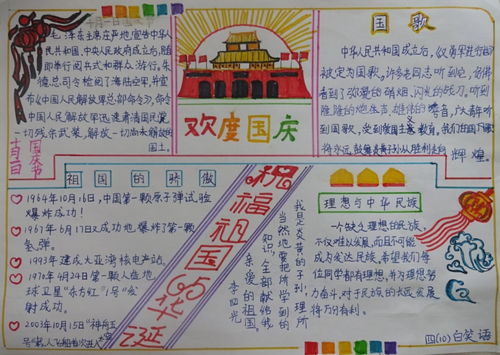 十月一日国庆节
毛泽东主席庄严地宣告中华人
民共和国、中央人民政府成立后,随
即举行阅兵式和群众游行。朱
德总司令检阅了海陆空军,并宣
布《中国人民解放军总部命令》,命令
中国人民解放军迅速肃清国民党
一切残余武装,解放一切尚未解放的
国土。
十月一日
国庆节
欢度国庆
国歌
中华人民共和国成立后,《义勇军进行曲》
被定为国歌,许多老同志听到它,仿佛
看到了弥漫的硝烟、闪光的战刀,听到
隆隆的炮火声、雄伟的
音,广大青年听
到国歌,受到爱国主义教育,我们的国歌
将永远,鼓舞炎黄子孙从胜利走向
辉煌。
祖国的骄傲
1964年10月16日,中国第一颗原子弹试验
爆炸成功!
1967年6月17日又成功地爆炸了第一颗
氢弹。
1993年建成大亚湾核电站。
1970年4月24日第一颗人造地
球卫星"东方红"1号"发
射成功。
2003年10月15日"神舟五
祝福祖国65华诞
我是炎黄的子孙,理所
当然地要把所学到的
知识,全部献给我
亲爱的祖国。
李四光
理想与中华民族
一个缺乏理想的民族,
不仅难以发展,而且不可能
成为发达民族,希望我们每
位同学都有理想,并为理想努
力奋斗,对于民族的大远发展
将万分有利。
四(10)白笑语